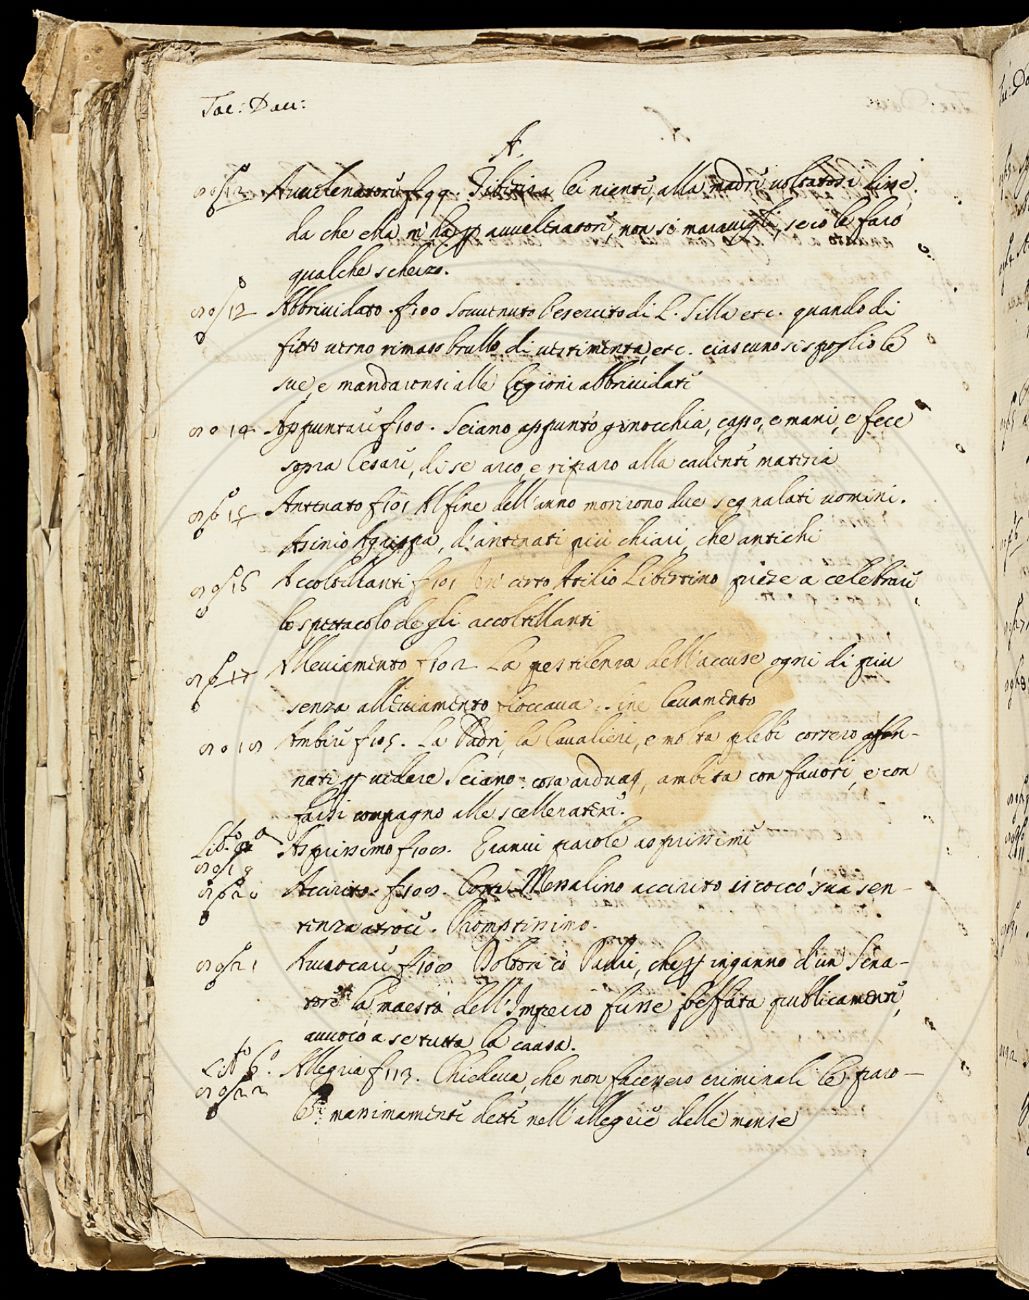 Tac: Dav:
A.
Avvelenatori f 99. Tiberio lei niente, alla madre voltatosi disse,
da che ella m'ha p avvelenatore non si maravigli, se io le farò
qualche scherzo.
12 Abbrividato f100 Sovvenuto l'esercito di L. Silla etc. quando di
fitto verno rimaso brullo di vestimenta, etc. ciascuno si spogliò le
sue, e mandaronsi alle legioni abbrividate
14 Appuntare f100. Seiano appuntò ginocchia, capo, e mani, e fece
sopra Cesare, di se arco, e riparo alla cadente materia
15 Antenato f101 Al fine dell'anno morirono due segnalati uomini.
Asinio Agrippa, d'antenati più chiari, che antichi
16 Accoltellanti f101 Un certo Atilio Libertino prese a celebrare
lo spettacolo degli accoltellanti
17 Alleviamento f102 La pestilenza dell'accuse ogni dì più
senza alleviamento fioccava
Ambire f105. La Padri, la Cavalieri, e molta plebe corsero affan-
nati p vedere Seiano: cosa ardua, ambita con favori, e con
farsi compagno alle scelleratezze.
Lib.
19 Asprissimo f108. Eranvi parole asprissime
20 Accivito f108. Cotta Messalino accivito iscoccò sua sen-
tenza atroce. Promptissimo.
21 Avvocare f108 Dolgoni o Padri, che p inganno d'un Sena-
tore la maestà dell'Imperio fusse beffata publicamente,
avvocò a se tutta la causa.
Lib 6.
22 Allegria f113. Chiedeva, che non facessero criminali le paro-
le massimamente dette nell'allegrie delle mense